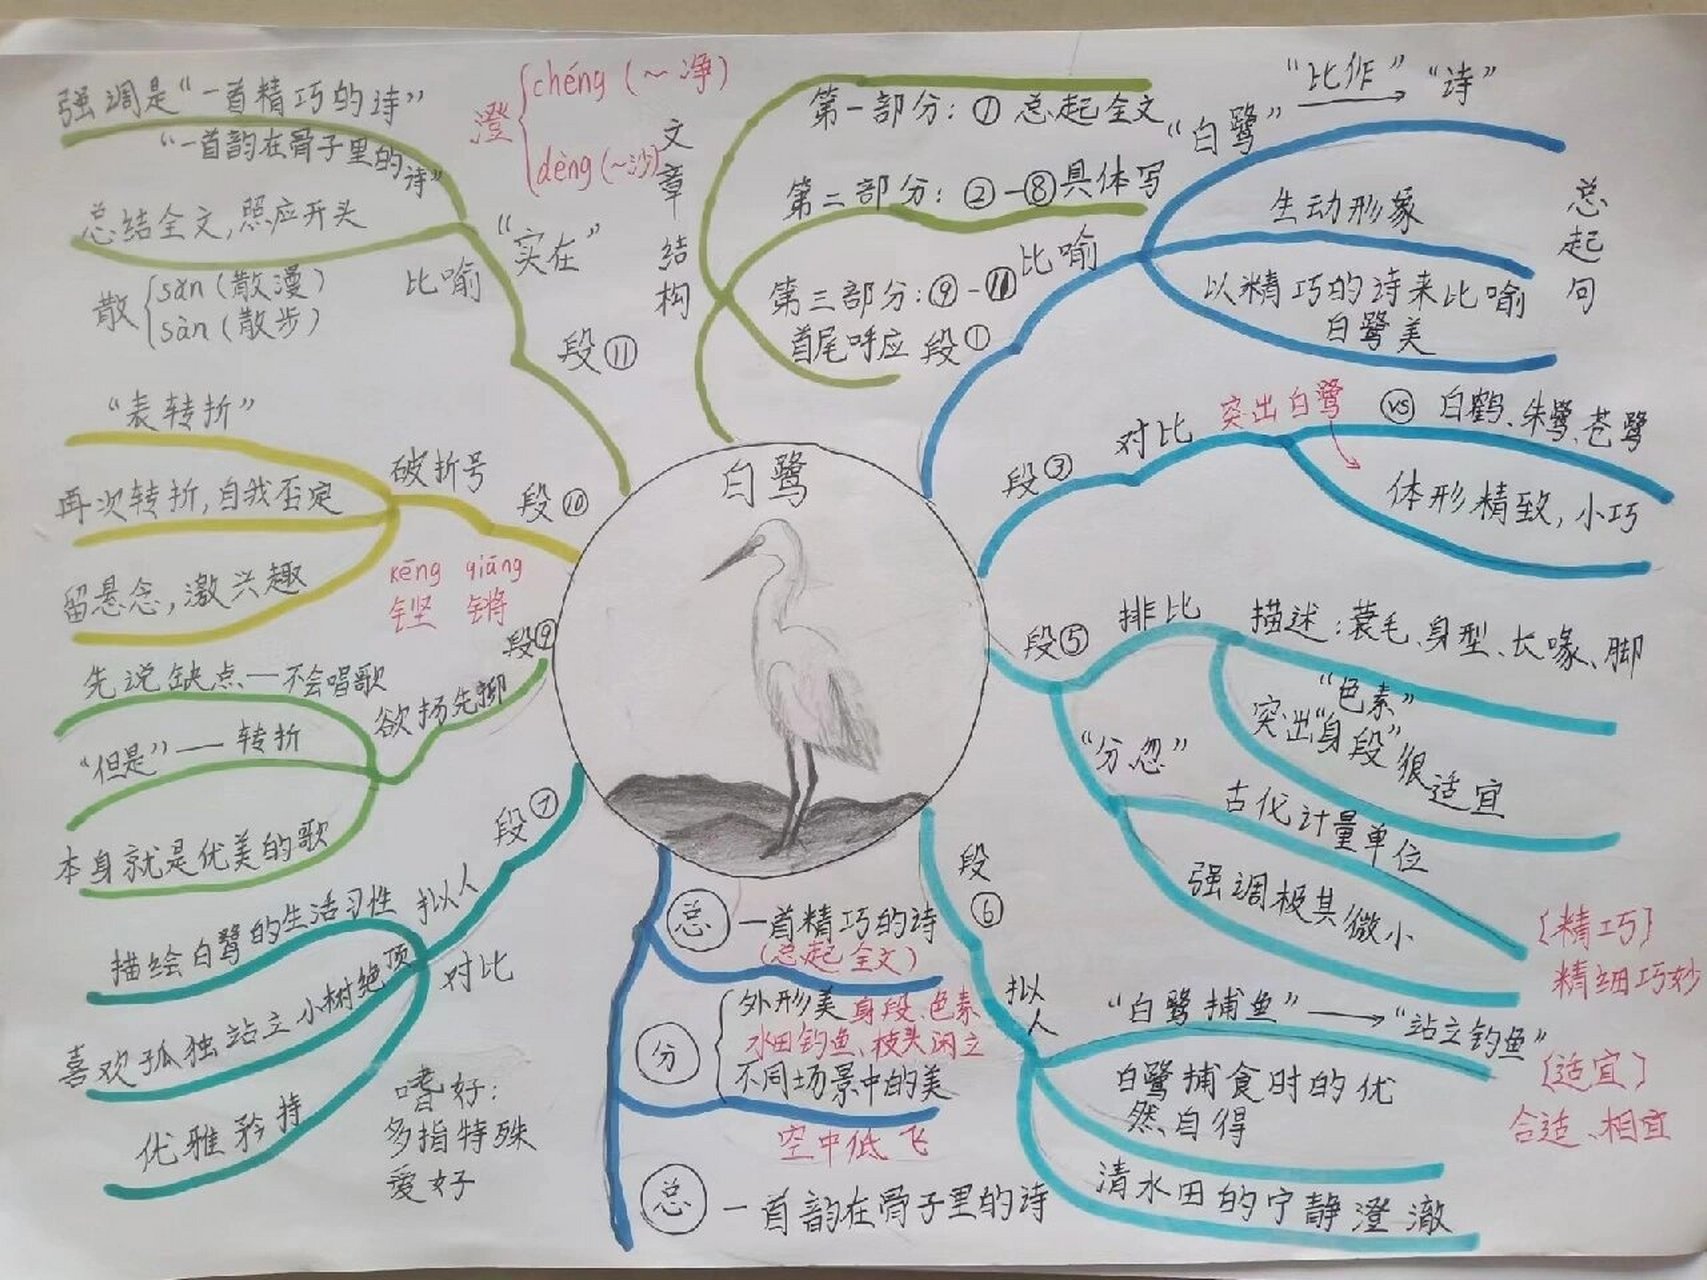 白鹭
文章结构
第一部分：① 总起全文
第二部分：②-⑧具体写
第三部分：⑨-⑪
首尾呼应
段①
比喻
“白鹭”
“比作”
“诗”
生动形象
以精巧的诗来比喻
白鹭美
总起句
段③
对比
突出白鹭
VS 白鹤、朱鹭、苍鹭
体形精致，小巧
段⑤
排比
描述：蓑毛、身型、长喙、脚
“色素”
突出“身段”很适宜
“分忽”
古代计量单位
强调极其微小
〔精巧〕
精细巧妙
段⑥
拟人
“白鹭捕鱼”→“站立钓鱼”
白鹭捕食时的优
然自得
清水田的宁静澄澈
〔适宜〕
合适、相宜
总
一首精巧的诗
(总起全文)
分
外形美 身段、色素
水田钓鱼、枝头闲立
不同场景中的美
空中低飞
总
一首韵在骨子里的诗
段⑦
拟人
对比
描绘白鹭的生活习性
喜欢孤独站立小树绝顶
优雅矜持
嗜好：
多指特殊
爱好
段⑨
欲扬先抑
先说缺点—不会唱歌
“但是”—转折
本身就是优美的歌
段⑩
破折号
“表转折”
再次转折，自我否定
留悬念，激兴趣
kēng qiāng
铿 锵
段⑪
“实在”
比喻
强调是“一首精巧的诗”
“一首韵在骨子里的诗”
总结全文，照应开头
散
sǎn (散漫)
sàn (散步)
澄
chéng (～净)
dèng (～沙)